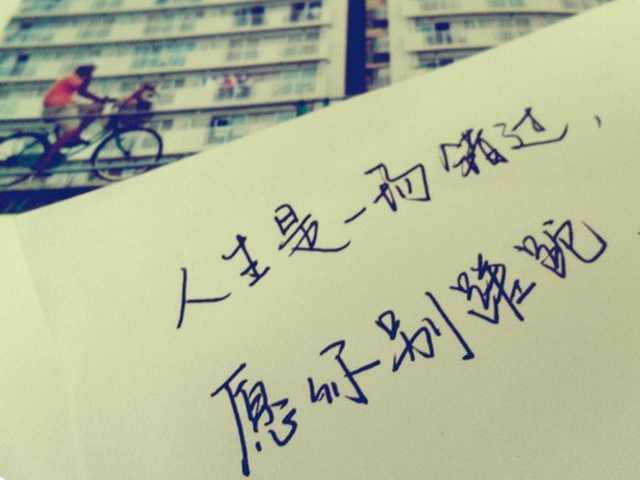 人生是一场错过，
愿你别蹉跎